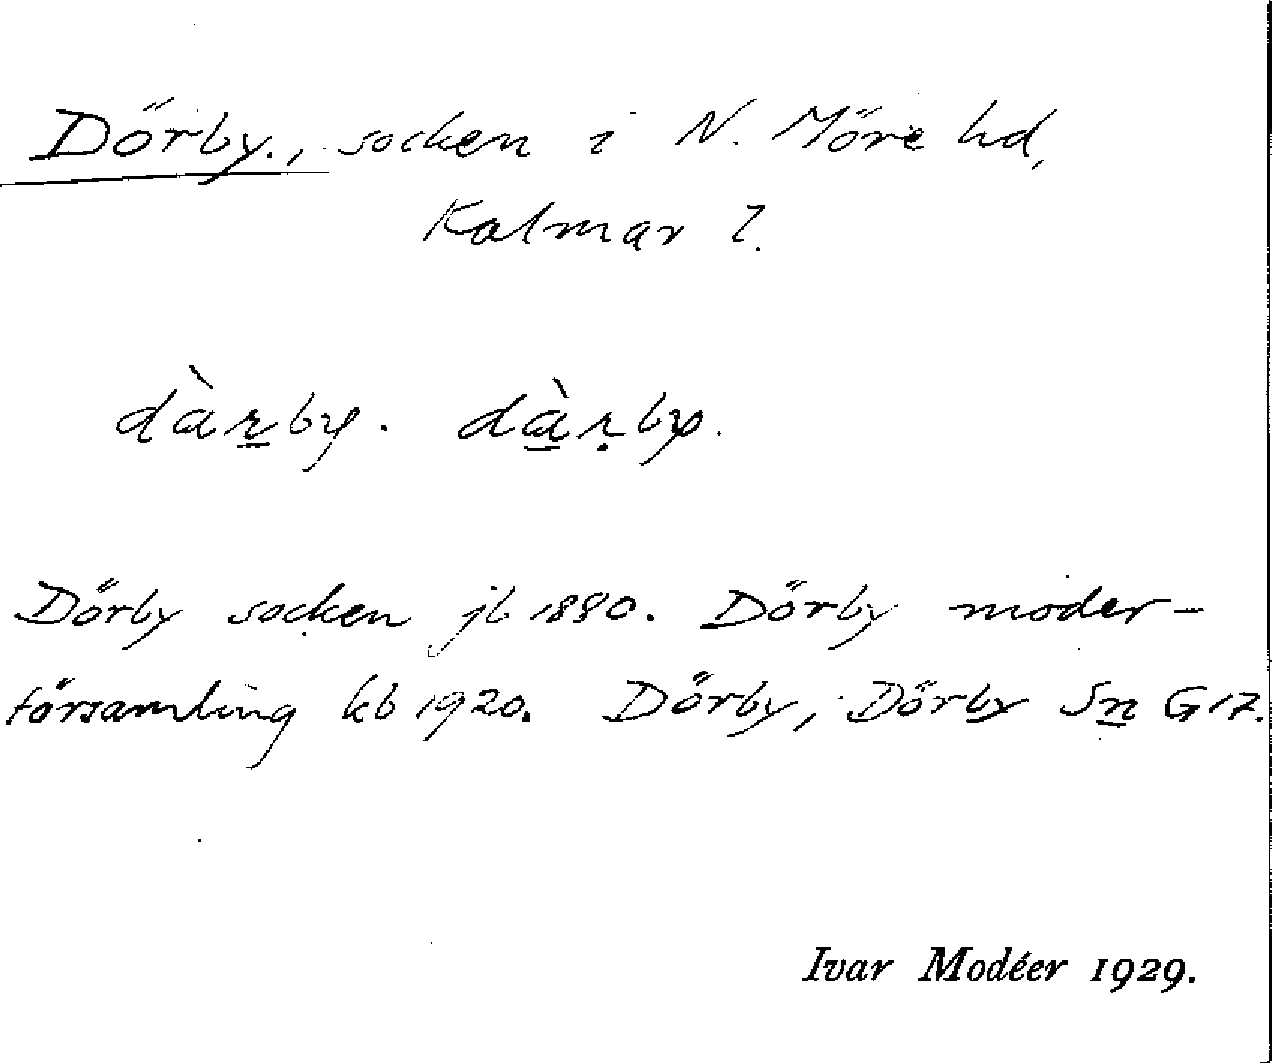 Dörby., socken i N. Möre hd,
Kalmar l.
dàr̲by. dà̲ṛby.
Dörby socken jb 1880. Dörby moder-
församling kb 1920. Dörby, Dörby Sn G 17.
Ivar Modéer 1929.